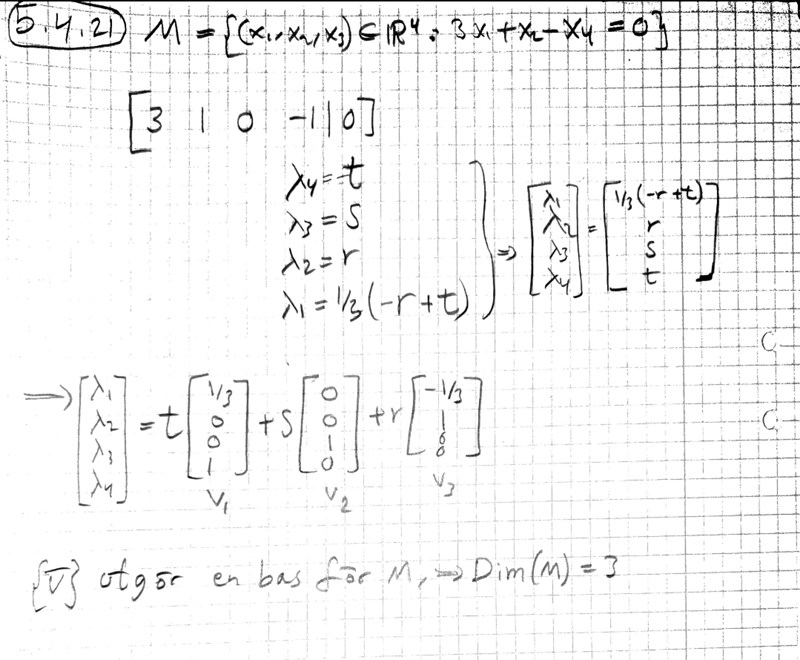 5.4.21) M = {(x₁,x₂,x₃) ∈ ℝ⁴: 3x₁+x₂-x₄=0}
[3 1 0 -1|0]
λ₄=t
λ₃=s
λ₂=r
λ₁=1/3(-r+t)
⇒ [λ₁ λ₂ λ₃ λ₄] = [1/3(-r+t) r s t]
⇒ [λ₁ λ₂ λ₃ λ₄] = t[1/3 0 0 1] + s[0 0 1 0] + r[-1/3 1 0 0]
v₁ v₂ v₃
{v̄} utgör en bas för M, ⇒ Dim(M) = 3